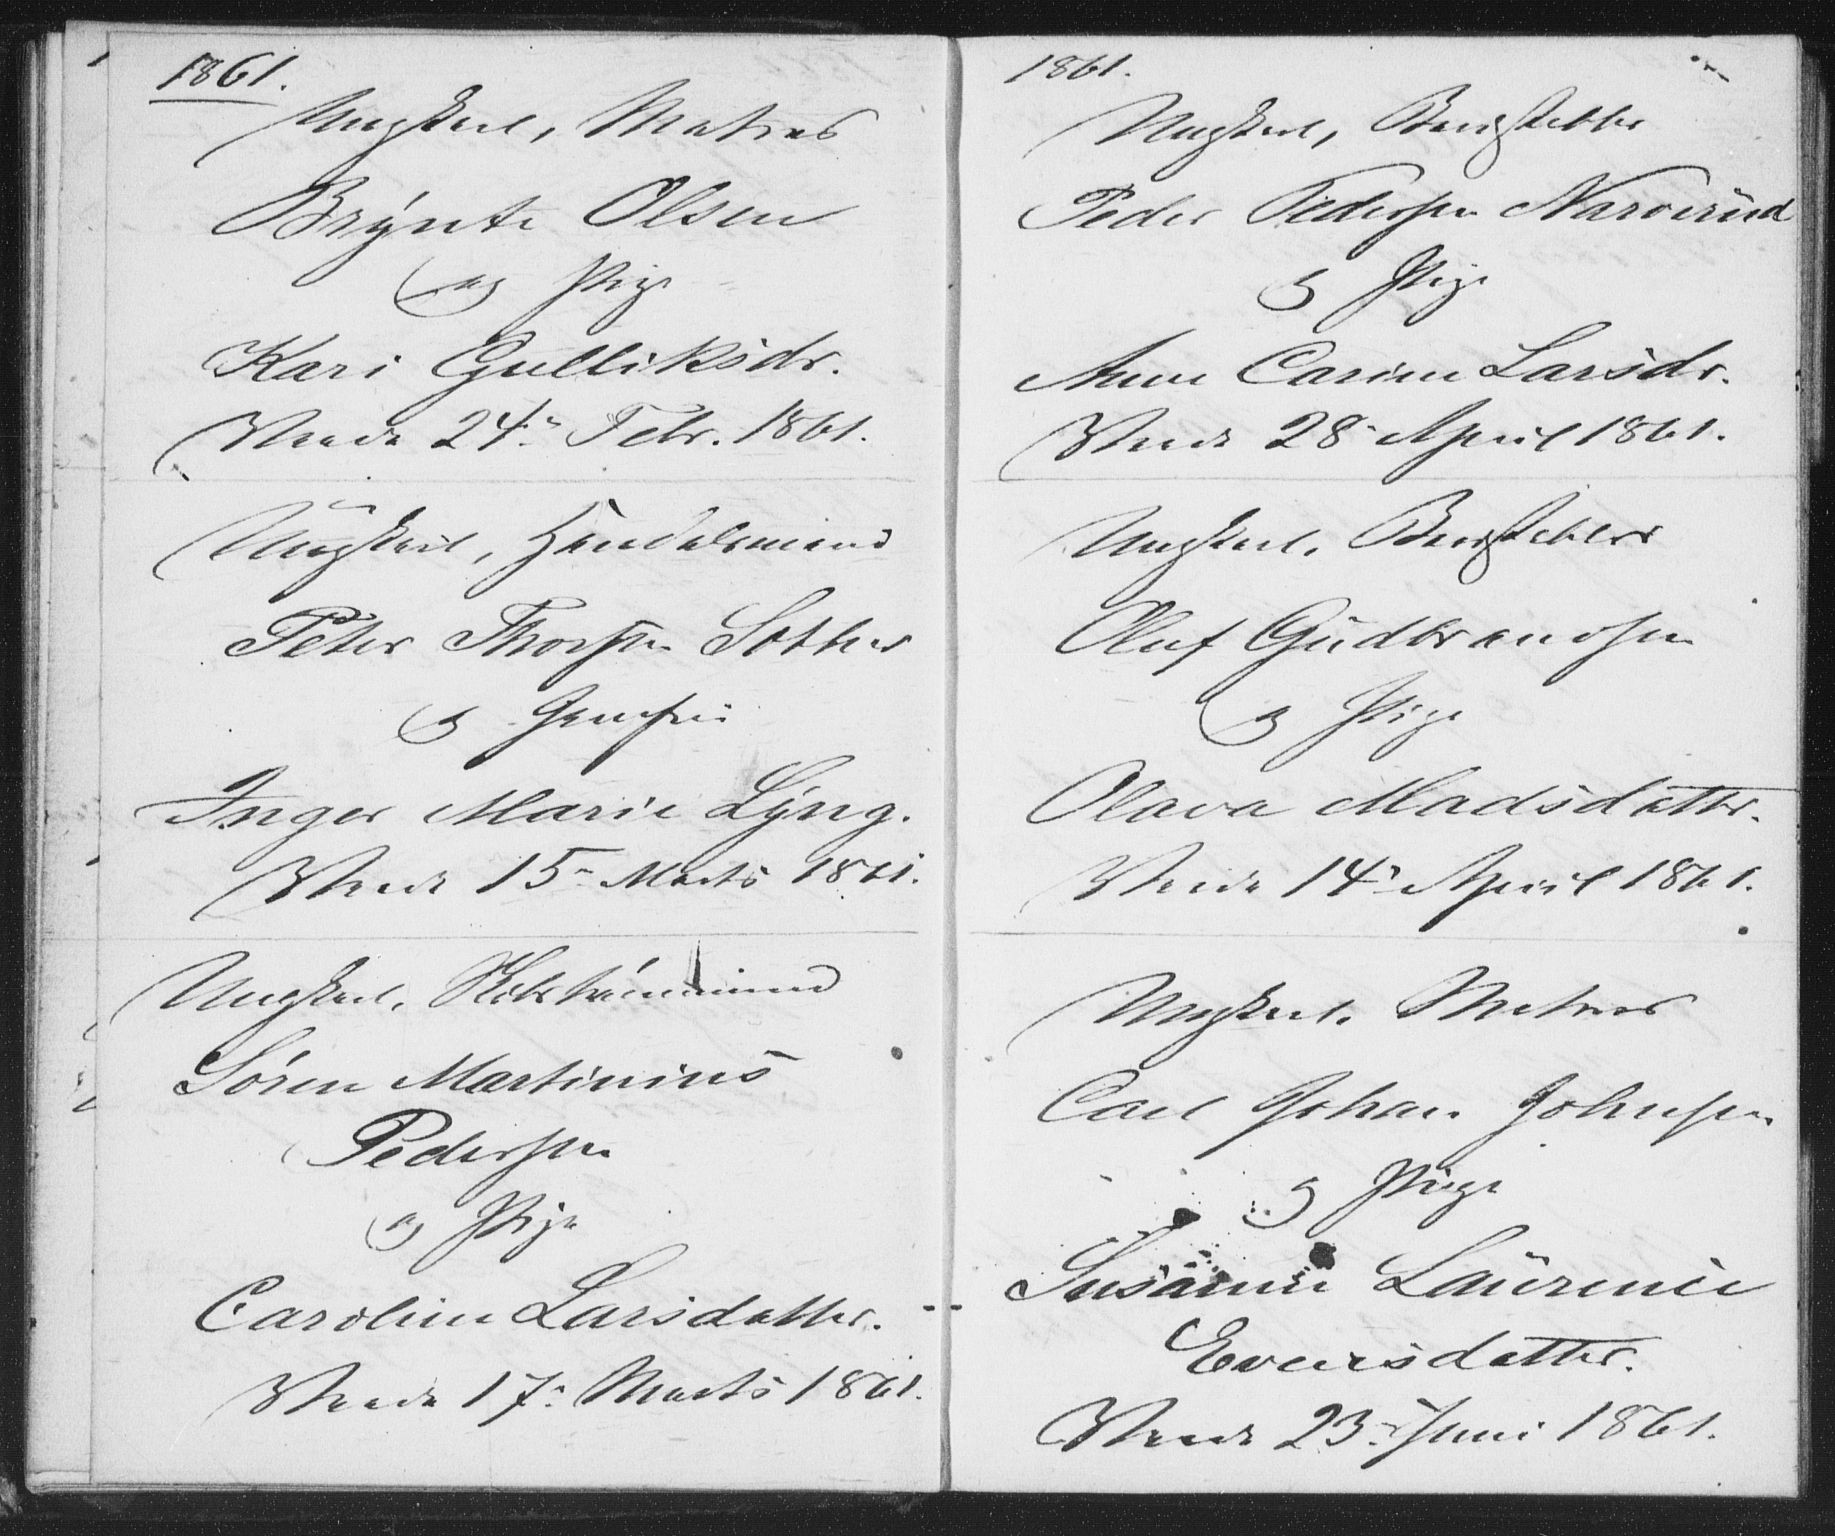 1861.
Ungkarl, Matros
Brynte Olsen
og Pige
Kari Gulliksdr.
Viede 24de Febr. 1861.
Ungkarl, Handelsmand
Peter Thorsen Sother
og Jomfru
Inger Marie Lyng.
Viede 15de Marts 1861.
Ungkarl,
Sören Martinius
Pedersen
og Pige
Caroline Larsdatter.
Viede 17de Marts 1861.
1861.
Ungkarl,
Peder Pedersen Narverud
og Pige
Anne Carine Larsdr.
Viede 28de April 1861.
Ungkarl,
Oluf Gudbrandsen
og Pige
Olava Madsdatter.
Viede 14de April 1861.
Ungkarl, Matros
Carl Johan Johnsen
og Pige
Susanne Laurence
Evensdatter.
Viede 23de Juni 1861.